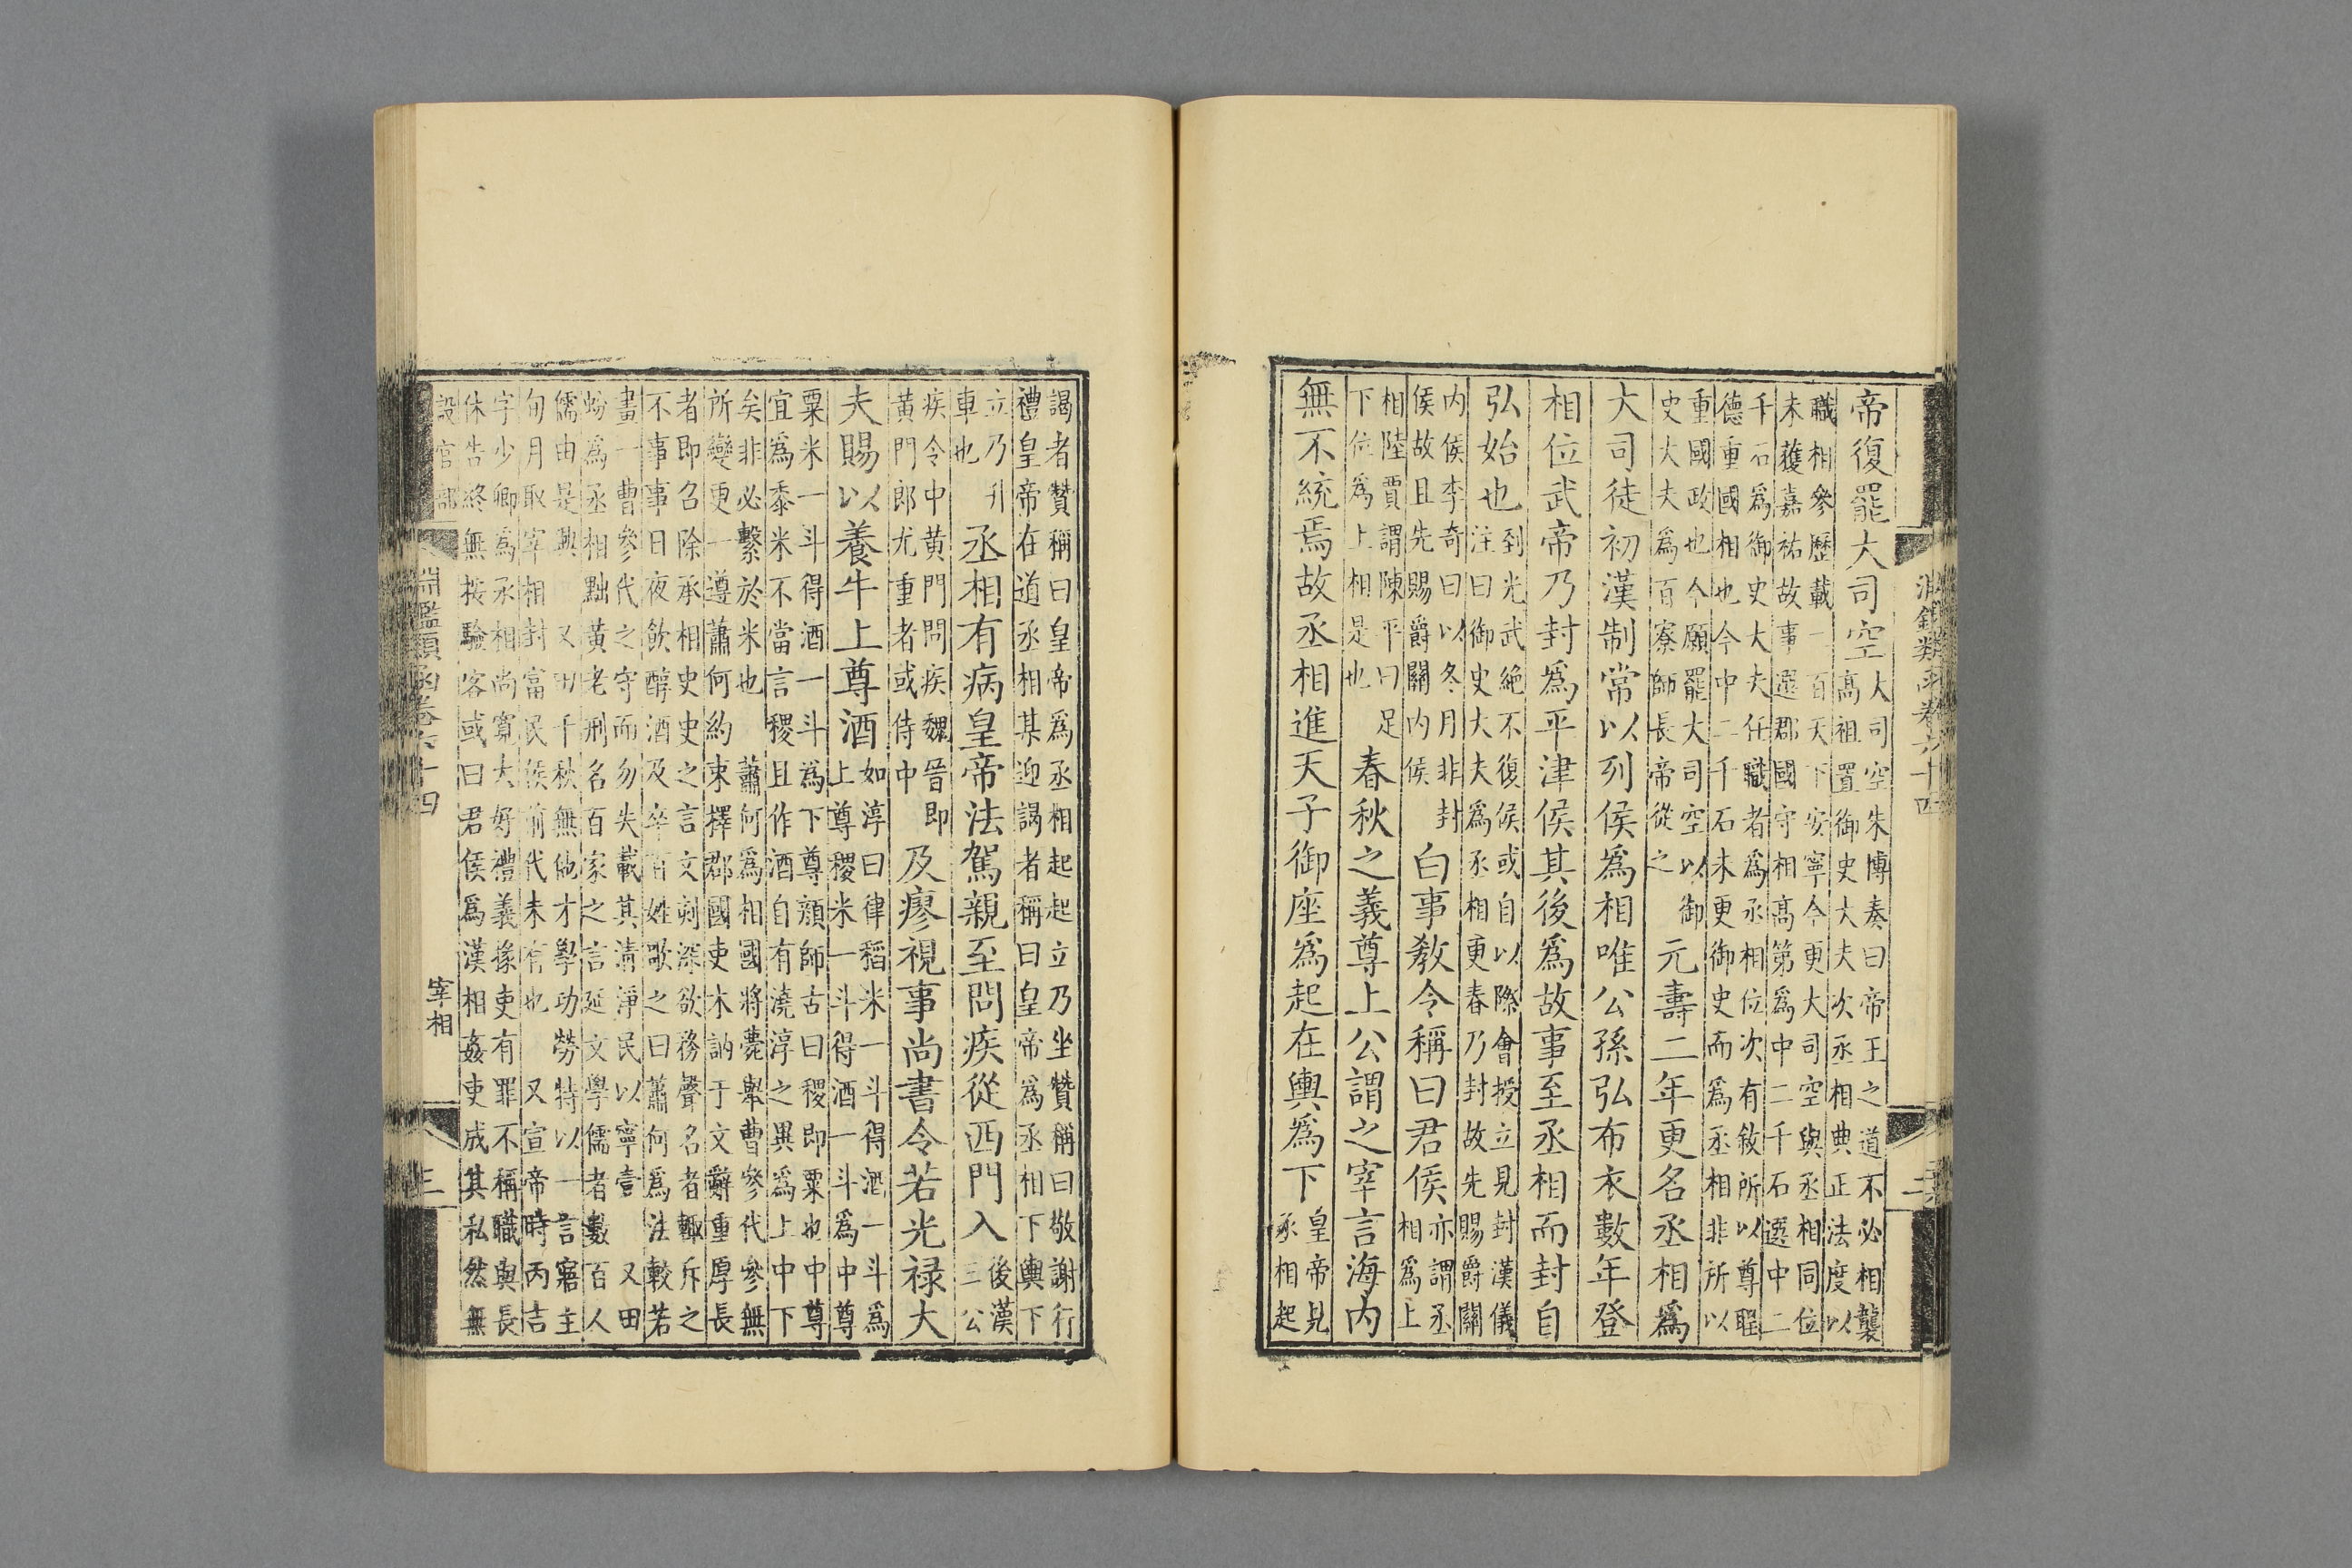 淵鑑類函卷六十四
二
帝復罷大司空
大司空朱博奏曰帝王之道不必相襲
高祖置御史大夫次丞相典正法度以
職相參歷載一百天下安寧今更大司空與丞相同位
未獲嘉祐故事選郡國守相高第爲中二千石選中二
千石爲御史大夫任職者爲丞相位次有敘所以尊聖
德重國相也今中二千石未更御史而爲丞相非所以
重國政也今願罷大司空以御
史大夫爲百寮師長帝從之
元壽二年更名丞相爲
大司徒初漢制常以列侯爲相唯公孫弘布衣數年登
相位武帝乃封爲平津侯其後爲故事至丞相而封自
弘始也
到光武絶不復侯或自以際會授立見封漢儀
注曰御史大夫爲丞相更春乃封故先賜爵關
内侯李奇曰以冬月非封
侯故且先賜爵關内侯
白事教令稱曰君侯
亦謂丞
相爲上
相陸賈謂陳平曰足
下位爲上相是也
春秋之義尊上公謂之宰言海内
無不統焉故丞相進天子御座爲起在輿爲下
皇帝見
丞相起
謁者贊稱曰皇帝爲丞相起起立乃坐贊稱曰敬謝行
禮皇帝在道丞相某迎謁者稱曰皇帝爲丞相下輿下
立乃升
車也
丞相有病皇帝法駕親至問疾從西門入
後漢
三公
疾令中黄門問疾魏晉即
黄門郎尤重者或侍中
及瘳視事尚書令若光禄大
夫賜以養牛上尊酒
如淳曰律稻米一斗得酒一斗爲
上尊稷米一斗得酒一斗爲中尊
粟米一斗得酒一斗爲下尊顔師古曰稷即粟也中尊
宜爲黍米不當言稷且作酒自有澆淳之異爲上中下
矣非必繫於米也　蕭何爲相國將薨舉曹參代參無
所變更一遵蕭何約束擇郡國吏木訥于文辭重厚長
者即召除承相史史之言文刻深欲務聲名者輒斥之
不事事日夜飲醇酒及卒百姓歌之曰蕭何爲法較若
畫一曹參代之守而勿失載其清淨民以寧壹　又田
蚡爲丞相黜黄老刑名百家之言延文學儒者數百人
儒由是興　又田千秋無他才學功勞特以一言寤主
旬月取宰相封富民侯前代未有也　又宣帝時丙吉
字少卿爲丞相尚寬大好禮義掾吏有罪不稱職與長
休告終無按驗客或曰君侯爲漢相姦吏成其私然無
設官部
淵鑑類函卷六十四
宰相
三